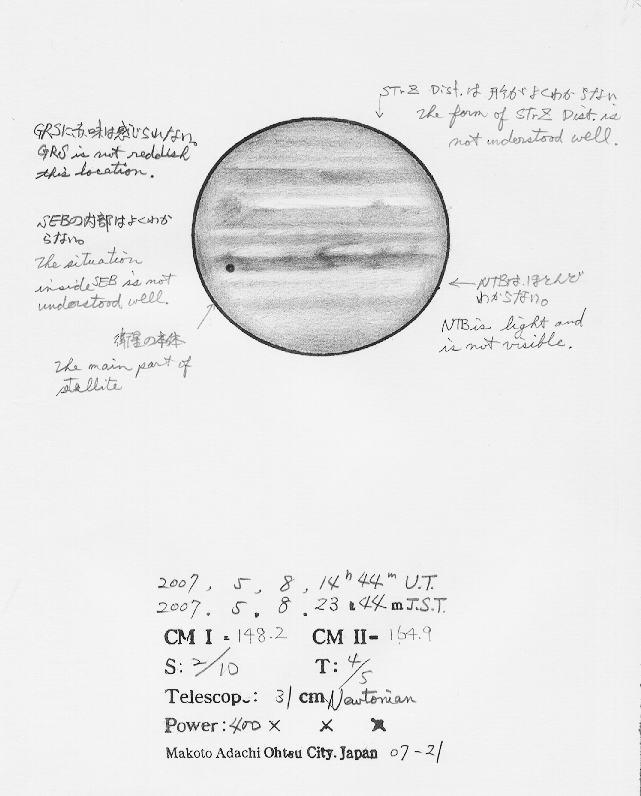 STrZ Dist.は 形がよくわからない
The form of STrZ Dist. is
not understood well.
GRSに赤味は感じられない。
GRS is not reddish
this location.
SEBの内部はよくわか
らない。
The situation
inside SEB is not
understood well.
衛星の本体
The main part of
stellite
NTBは、ほとんど
わからない。
NTB is light and
is not visible.
2007. 5. 8. 14h 44m U.T.
2007. 5. 8. 23 h 44 m J.S.T.
CM I = 148.2 CM II = 164.9
S: 2/10 T: 4/5
Telescope: 31 cm Newtonian
Power: 400 × × ×
Makoto Adachi Ohtsu City. Japan 07-21